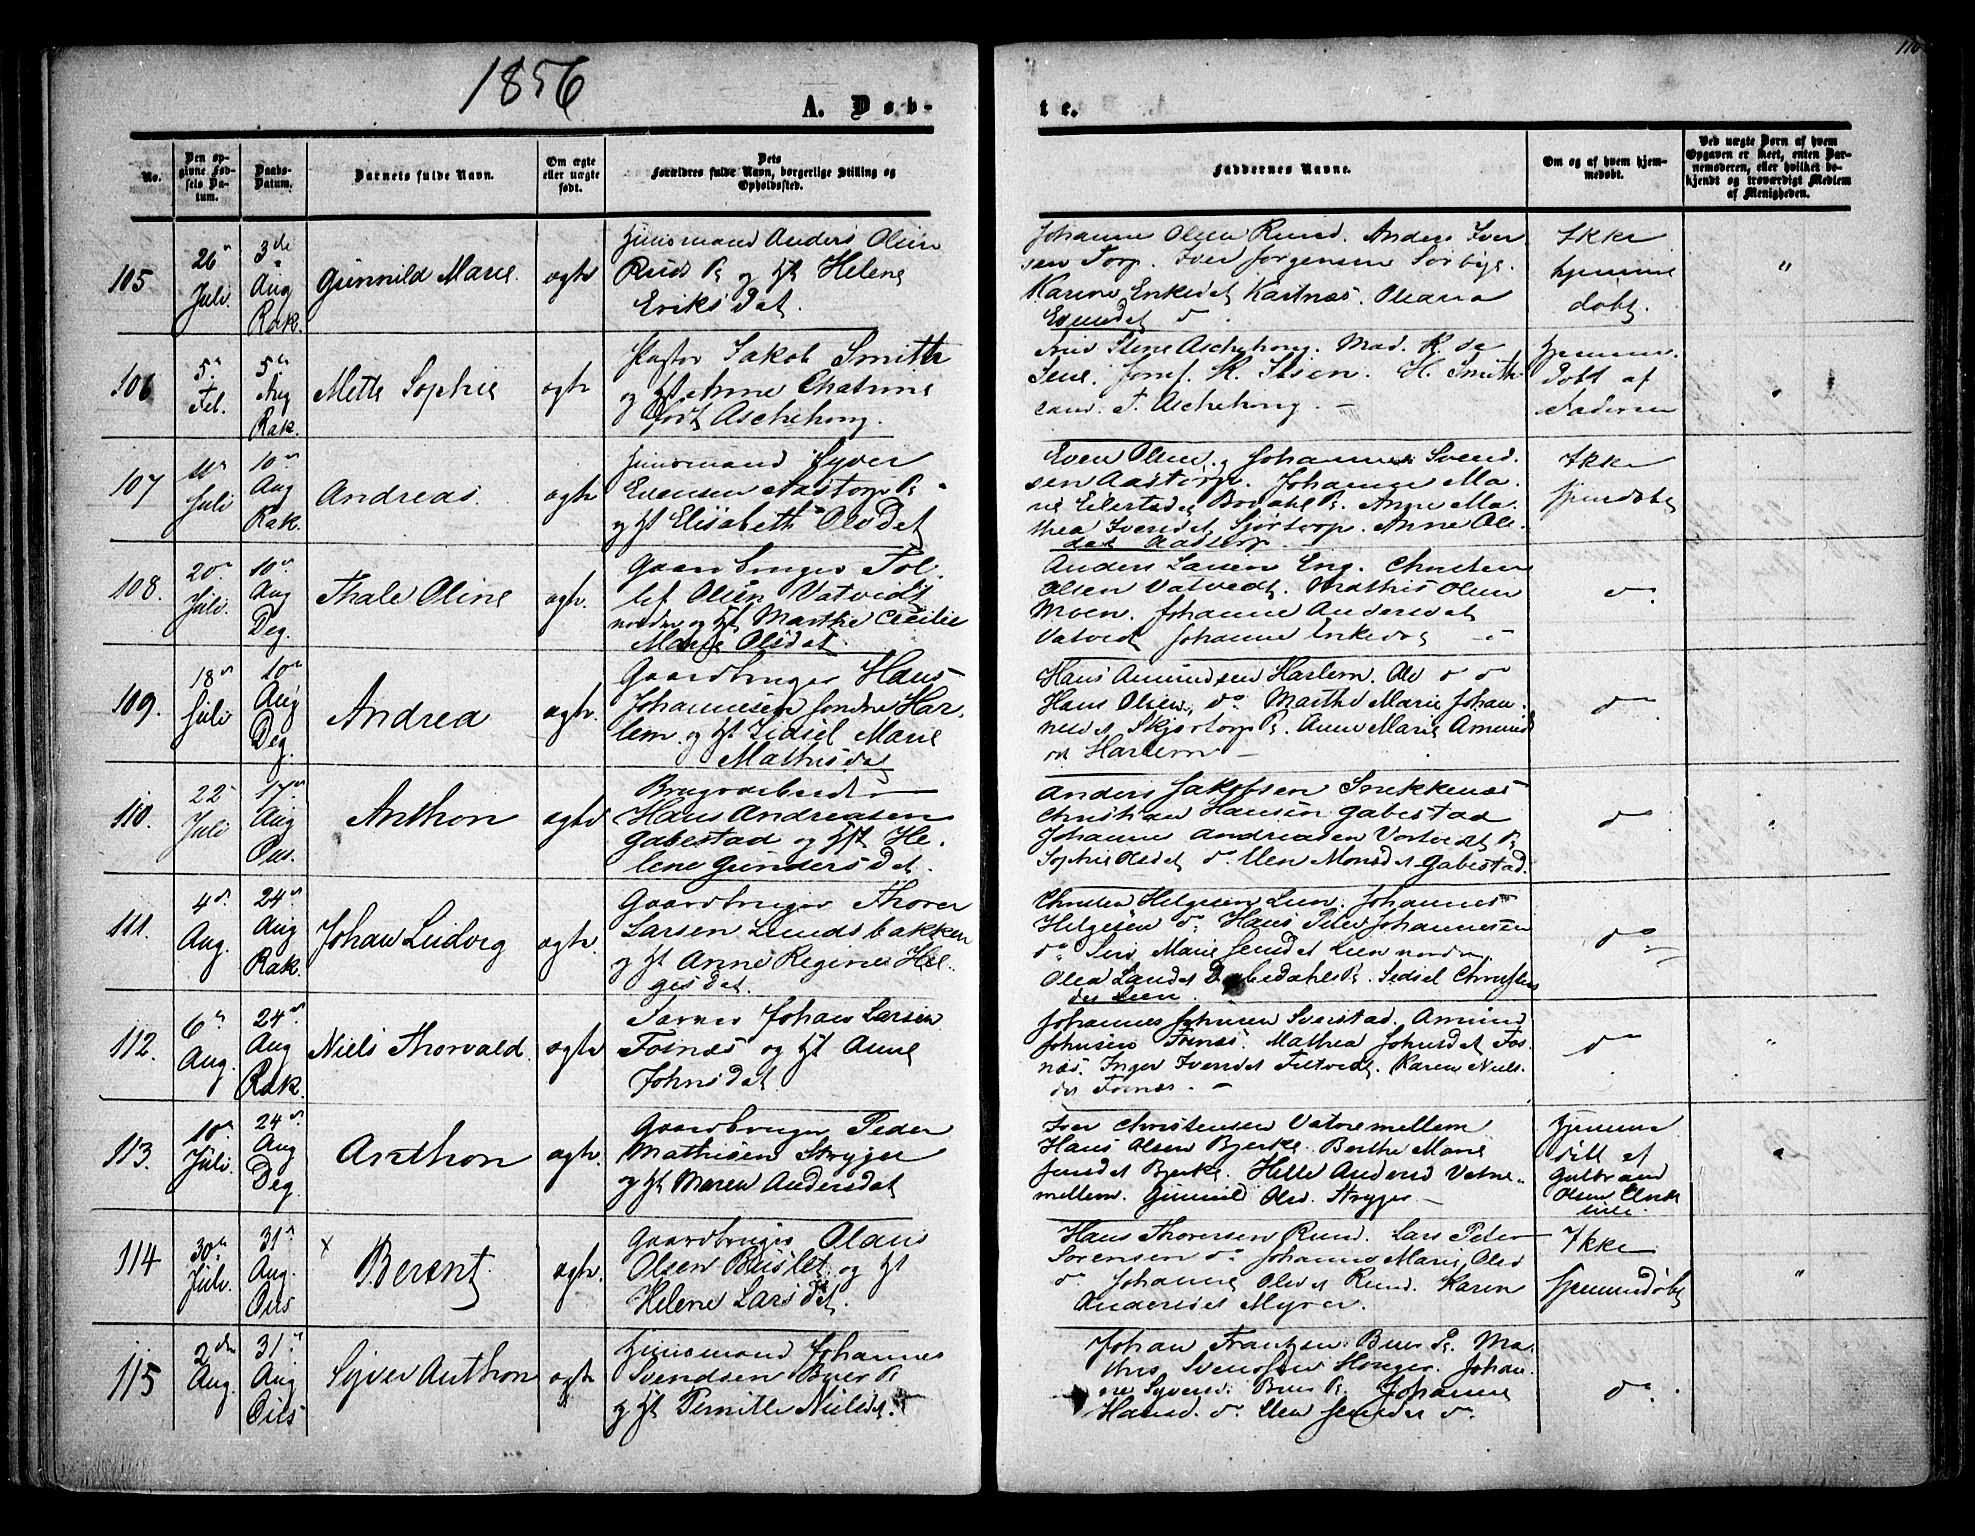 110
1856
A. Døb-
te.
No.
Den op-
givne Fød-
sels Da-
tum.
Daabs-
Datum.
Barnets fulde Navn.
Om ægte
eller uægte
født.
Dets
Forældres fulde Navn, borgerlige Stilling og
Opholdssted.
Faddernes Navne.
Om og af hvem hjem-
medøbt.
Ved uægte Børn af hvem
Opgaven er skeet, enten Bar-
nemoderen, eller hvilket be-
kjendt og troværdigt Medlem
af Menigheden.
105
26
Juli
3die
Aug
Rak.
Gunnild Marie.
ægte
Huusmand Anders Olsen
Ruud P. og Hst Helene
Eriks Dat.
Johanne Olsen Ruud. Anders Iver
sen Torp. Iver Jørgensen Sørbye.
Karine
Ikke
hjemme
døbt.
"
106
5
Feb.
5te
Aug
Rak.
Mette Sophie
ægte
Pastor Jakob Smith
og Hst Anne Cathrine
født Aschehoug.
Stene Aschehoug. Mad.
H. Smith
T. Aschehoug. —
hjemme-
døbt af
Faderen
107
Juli
10
Aug
Rak.
Andreas.
ægte
Huusmand Syver
Evensen Aastorp P.
og Hst Elisabeth Olsdat
Even Olsen og Johannes Svend.
sen Aastorp. Johanne Ma-
rie Eilertsdat Bodahl P. Anne Ma-
thea Iversdat Gjørtorp. Anne Ols-
dat Aastorp.
Ikke
hjemdøbt
108.
20
Juli
10
Aug
Deg.
Thale Oline
ægte.
Gaardbruger Tol-
lef Olsen Vatvedt
nordre og Hst Marthe Cecilie
Marie Olsdat.
Anders Larsen Eng. Christen
Olsen Vatvedt. Mathis Olsen
Moen. Johanne Andersdat
Vatvedt Johanne
do
109.
18
Juli
10
Aug
Deg.
Andrea
ægte.
Gaardbruger Hans
Johannesen søndre Har-
lem og Hst Sidsel Marie
Mathisdat
Hans Amundsen Harlem. Ole do do
Hans Olsen do Marthe Marie Johan-
nesd Skjørtorp P. Anne Marie Amund
sd Harlem —
do
110.
22
Juli
17
Aug
Ous.
Anthon
ægte
Brugsarbeider
Hans Andreasen
Gabestad og Hst He-
lene Gundersdat.
Anders Jakobsen Snekkenæs
Christian Hansen Gabestad
Johanne Andreasen Vatvedt P.
Sophie Olsdat do Monsdat Gabestad.
do
111.
4
Aug.
24
Aug
Rak.
Johan Ludvig
ægte.
Gaardbruger Thorer
Larsen Lundsbakken
og Hst Anne Regine Hel-
gesdat.
Christen Helgesen Lien. Johannes
Helgesen do Hans Peter Johannesen
do Marie Lien nordre.
Olea Larsdat Sidsel Christens
dat Lien.
do
112.
6
Aug.
24
Aug
Rak.
Niels Thorvald.
ægte
Johan Larsen
Fosnæs og Hst Anne
Johnsdat
Johannes Johnsen Sverstad. Amund
Johnsen Fosnæs. Mathea Johnsdat Fos-
næs. Inger Iversdat Feltvedt. Karen Niels-
dat Fosnæs. —
do
"
113.
10
Juli.
24
Aug
Deg.
Anthon
ægte.
Gaardbruger Peder
Mathisen Stryger
og Hst Maren Andersdat
Iver Christensen Vatnemellem
Hans Olsen Bjerke. Berthe Marie
Jensdat Bjerke. Helle Andersd Vatne-
mellem. Gunnild Olsd. Stryger —
hjemme
døbt af
Gulbrand
Olsen
114
30
Juli.
31
Aug.
Ous
x
Berent
ægte.
Gaardbruger Olaus
Olsen Buslet og Hst
Helene Larsdat.
Hans Thoresen Ruud. Lars Peter
Sørensen do Johanne Marie Olsd
do Johanne Olsdat Ruud. Karen
Andersdat Myrer.
Ikke
hjemmedøbt
"
115
2den
Aug.
31
Aug
Ous
Syver Anthon
ægte
Huusmand Johannes
Svendsen Buer P.
og Hst Pernille Nielsdat.
Johan Frantzen Buer P. Ma-
this Svendsen Johan-
ne Syversd. Buer P. Johanne
Hansd. do Jensdat do
do